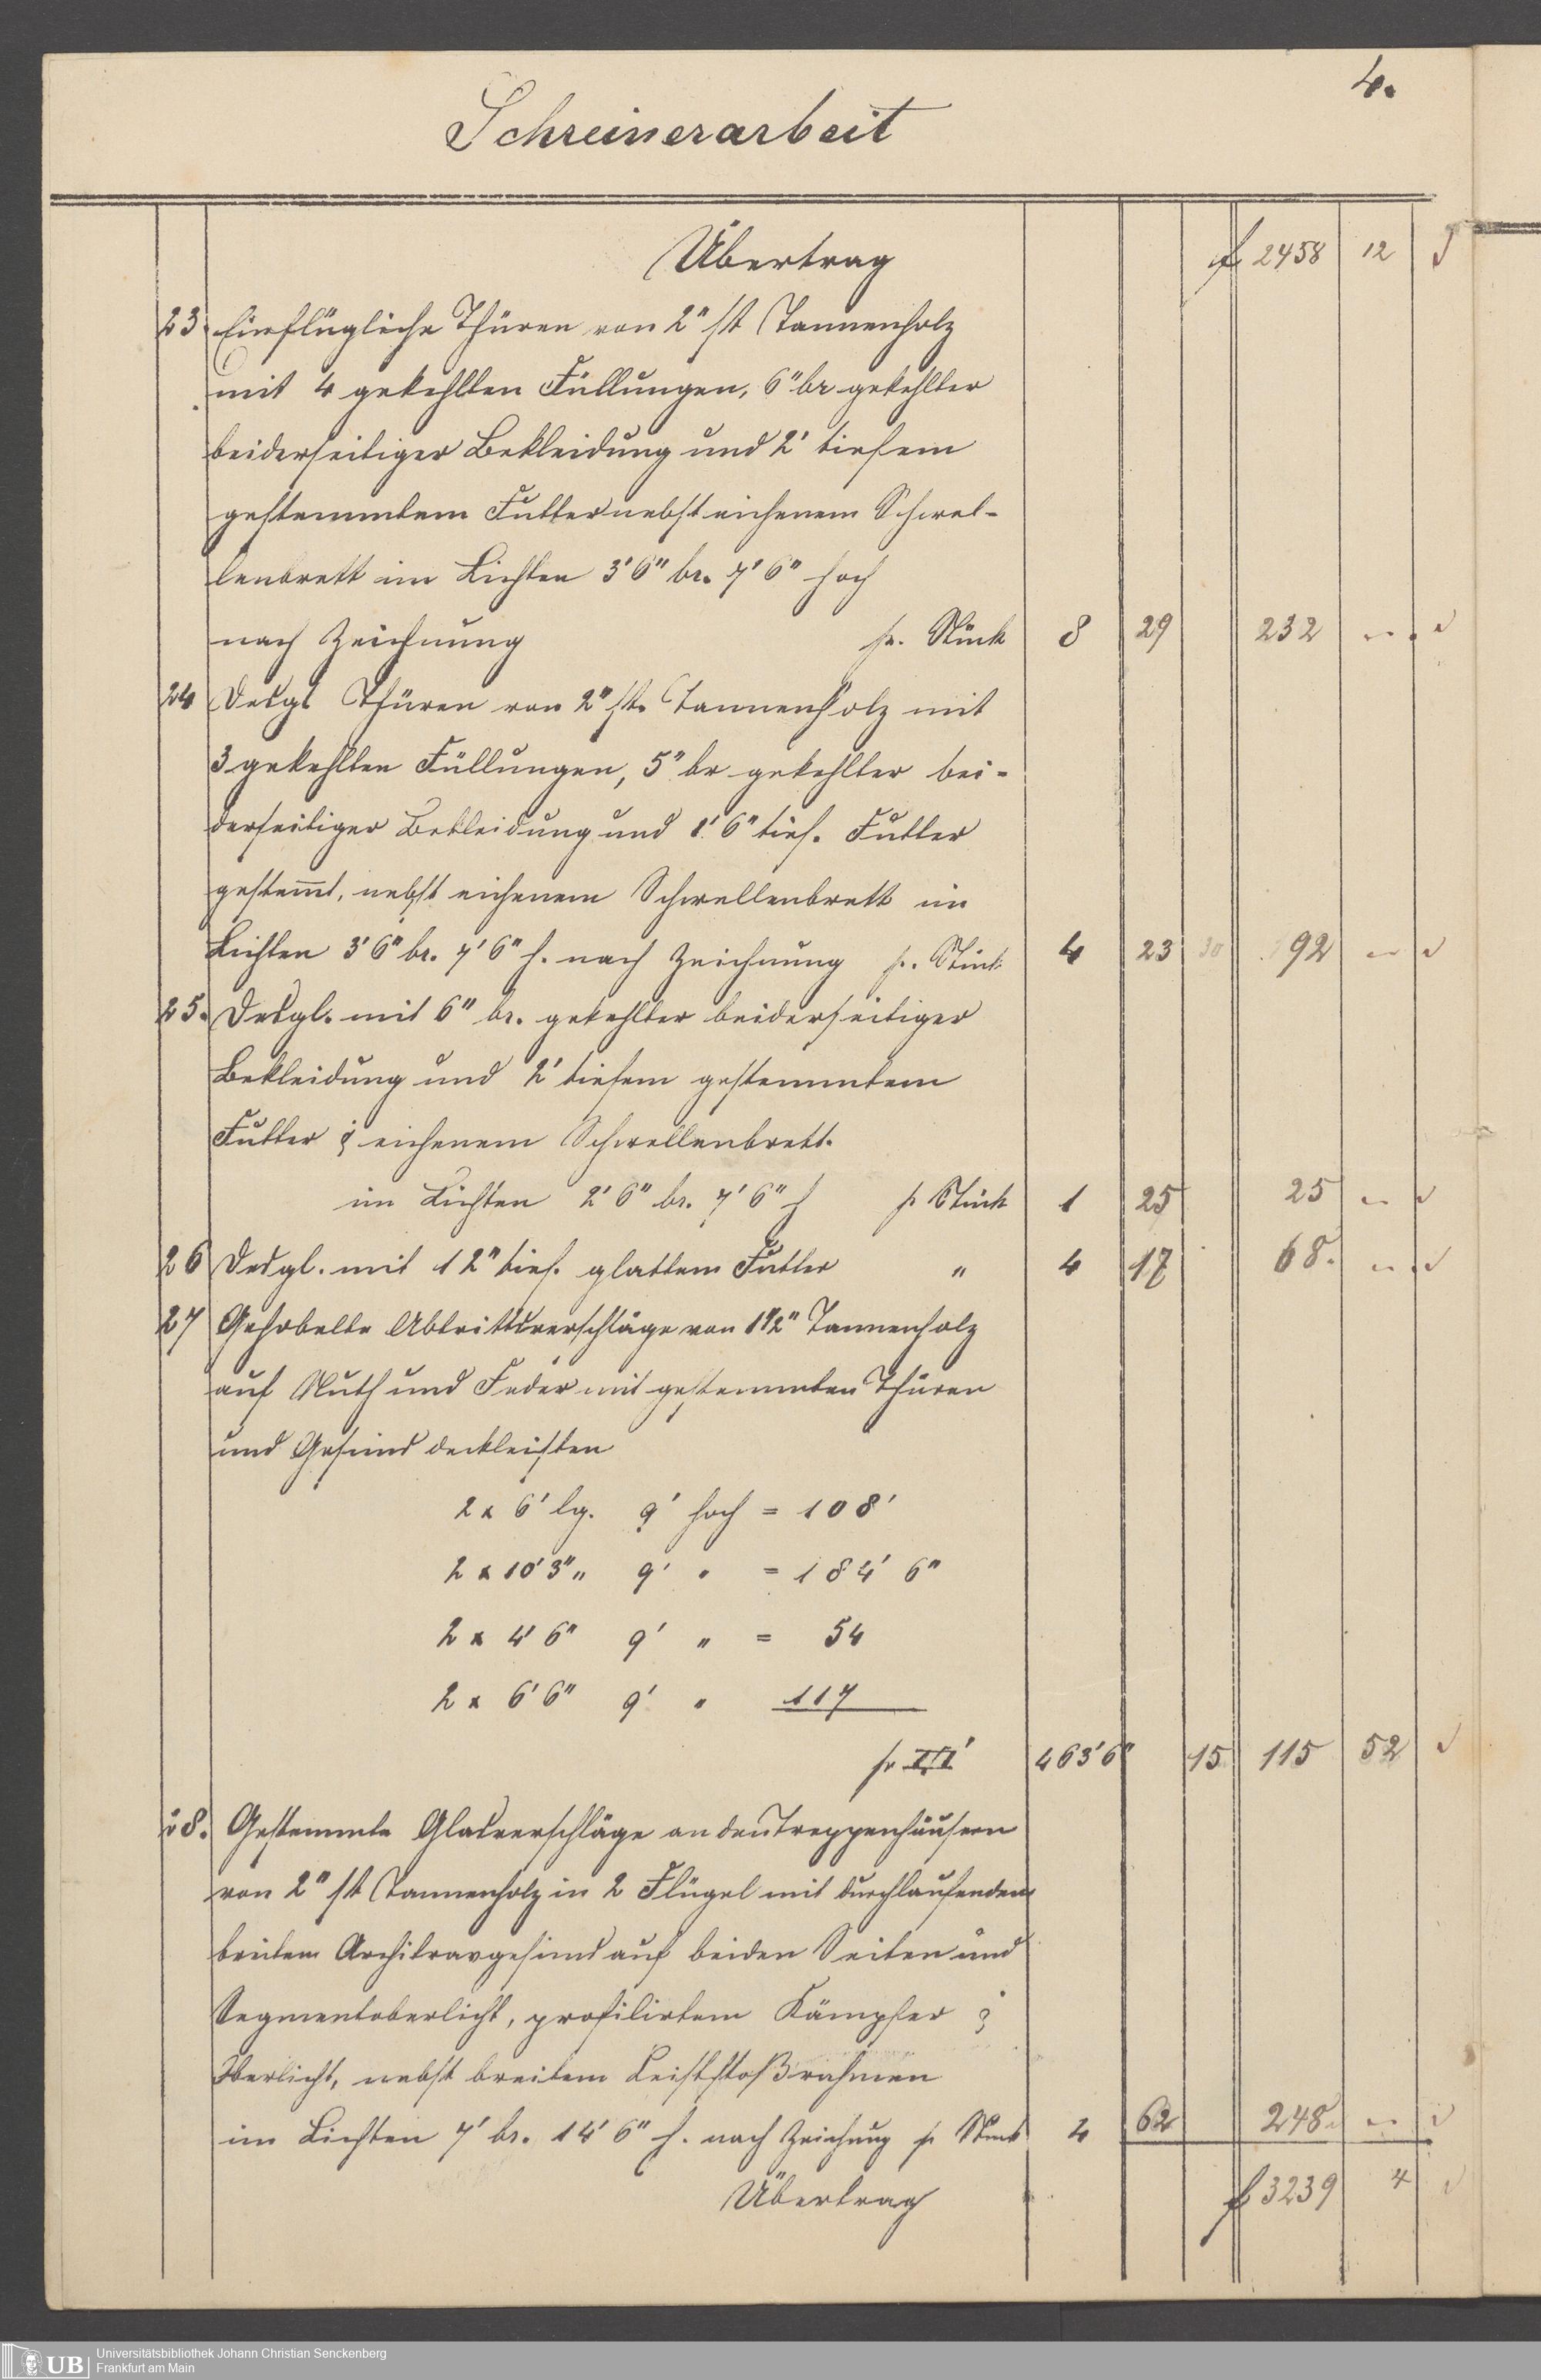 4.
Schreinerarbeit
Übertrag f 2458 12
23. Einflügliche Thüren von 2" st Tannenholz
mit 4 gekehlten Füllungen, 6" br gekehlter
beiderseitiger Bekleidung und 2' tiefem
gestemmtem Futter nebst eichenem Schwel-
lenbrett im Lichten 3'6" br. 7'6" hoch
nach Zeichnung pr. Stück 8 29 232 "
24 Desgl Thüren von 2" st. Tannenholz mit
3 gekehlten Füllungen, 5" br gekehlter bei-
derseitiger Bekleidung und 1'6" tief. Futter
gestem̄t, nebst eichenem Schwellenbrett im
Lichten 3'6" br. 7'6" h. nach Zeichnung pr. Stück 4 23 92 "
25. Desgl. mit 6" br. gekehlter beiderseitiger
Bekleidung und 2' tiefem gestemmtem
Futter & eichenem Schwellenbrett.
im Lichten 2'6" br. 7'6" h pr Stück 1 25 25 "
26 Desgl. mit 12" tief. glattem Futter " 4 17 68. "
27 Gehobelte Abtrittsverschläge von 1 1/2" Tannenholz
auf Nuth und Feder mit gestemmten Thüren
und Gesims deckleisten
2 x 6' lg. 9' hoch = 108'
2 x 10'3" " 9' " = 184' 6"
2 x 4'6" 9' " = 54
2 x 6'6" 9' " 117
pr □' 463'6" 15 115 52
28. Gestemmte Glasverschläge an den Treppenhäusern
von 2" st Tannenholz in 2 Flügel mit durchlaufendem
breitem Architravgesims auf beiden Seiten und
Segmentoberlicht, profilirtem Kämpfer &
Oberlicht, nebst breitem rahmen
im Lichten 7' br. 14'6" h. nach Zeichnung pr Stück 4 62 248 "
Übertrag f 3239 4
UB
Universitätsbibliothek Johann Christian Senckenberg
Frankfurt am Main